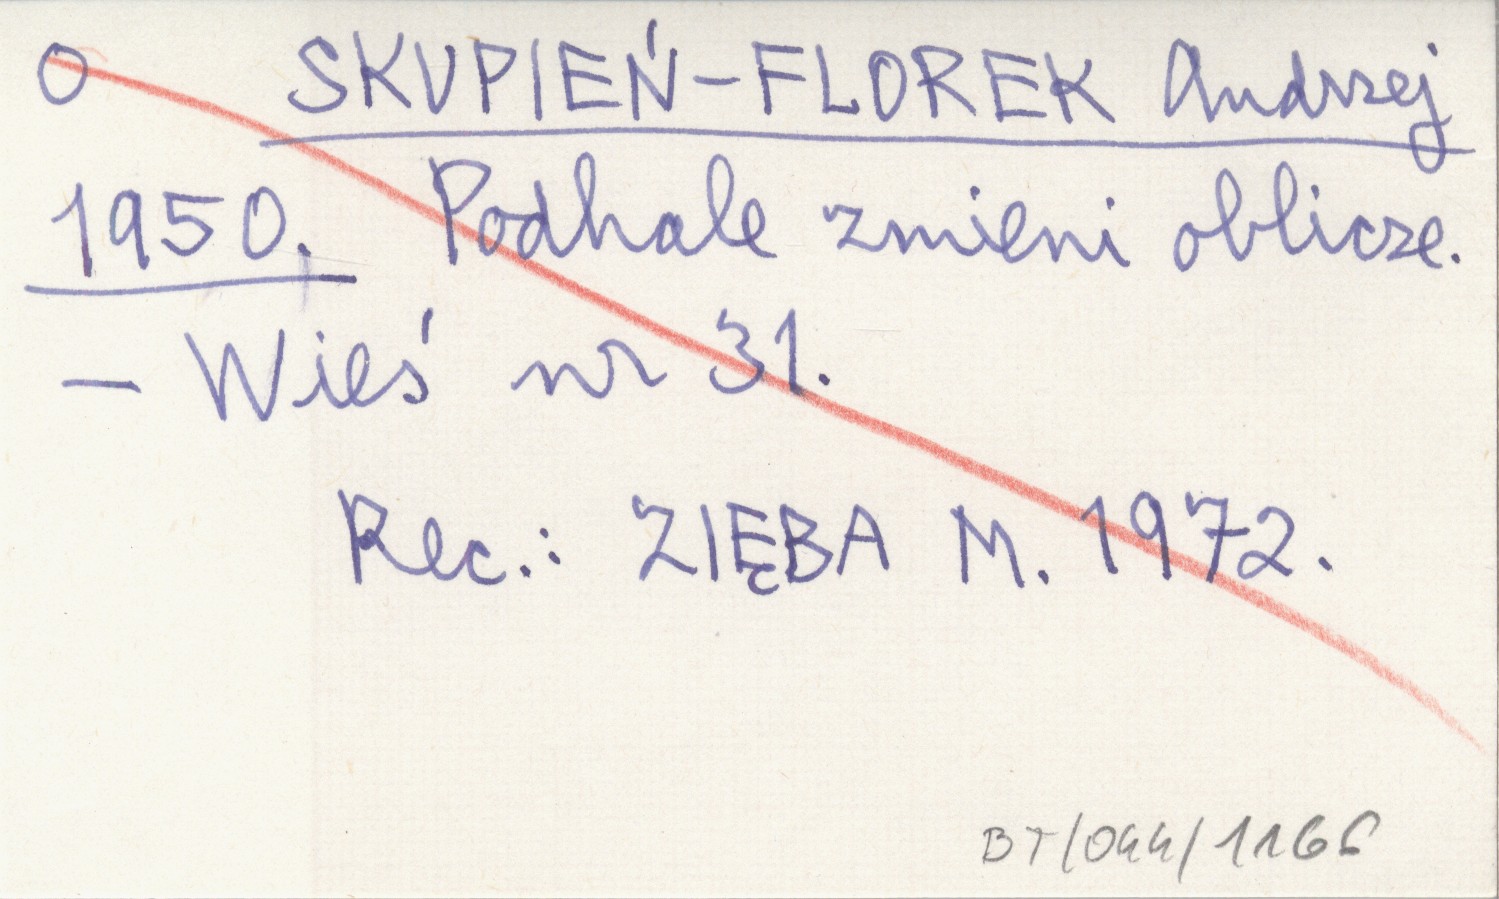 O SKUPIEŃ-FLOREK Andrzej
1950. Podhale zmieni oblicze.
— Wieś nr 31.
Rec.: ZIĘBA M. 1972.
BT/044/1166